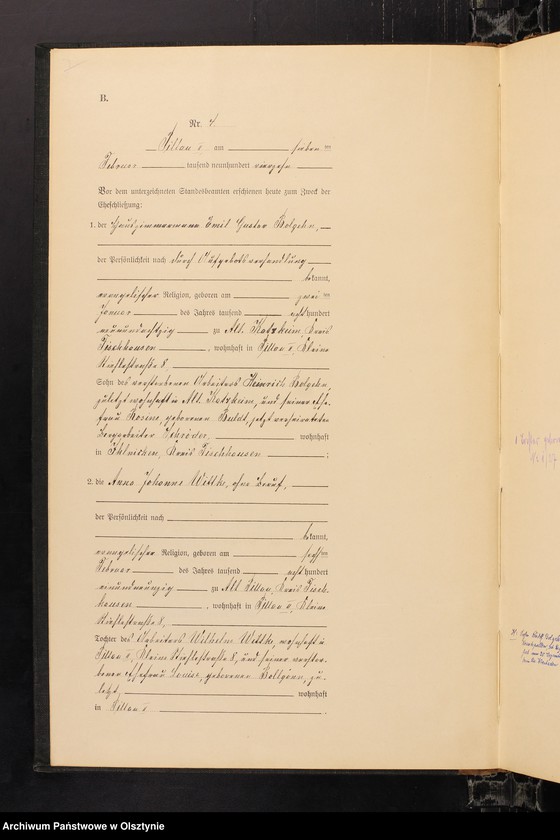 B.
Nr. 4.
Pillau I am sieben ten
Februar tausend neunhundert vierzehn
Vor dem unterzeichneten Standesbeamten erschienen heute zum Zweck der
Eheschließung:
1. der Hauszimmermann Emil Gustav Bolgehn,
der Persönlichkeit nach durch Aufgebotsverhandlung
bekannt,
evangelischer Religion, geboren am zwei ten
Januar des Jahres tausend acht hundert
neunundachtzig zu Alt Katzkeim, Kreis
Fischhausen, wohnhaft in Pillau I, Kleine
straße 8
Sohn des verstorbenen Arbeiters Heinrich Bolgehn,
zuletzt wohnhaft in Alt Katzkeim, und seiner Ehe-
frau Rosine, geborenen jetzt verheirateten
Bergarbeiter Schröder, wohnhaft
in Kreis Fischhausen;
2. die Anna Johanne Wittke, ohne Beruf,
der Persönlichkeit nach
bekannt,
evangelischer Religion, geboren am sechsten
Februar des Jahres tausend acht hundert
einundneunzig zu Alt Pillau, Kreis Fisch-
hausen, wohnhaft in Pillau I, Kleine
straße 8,
Tochter des Arbeiters Wilhelm Wittke, wohnhaft in
Pillau I, Kleine straße 8, und seiner verstor-
benen Ehefrau Louise, geborenen zu-
letzt, wohnhaft
in Pillau I.
Archiwum Państwowe w Olsztynie